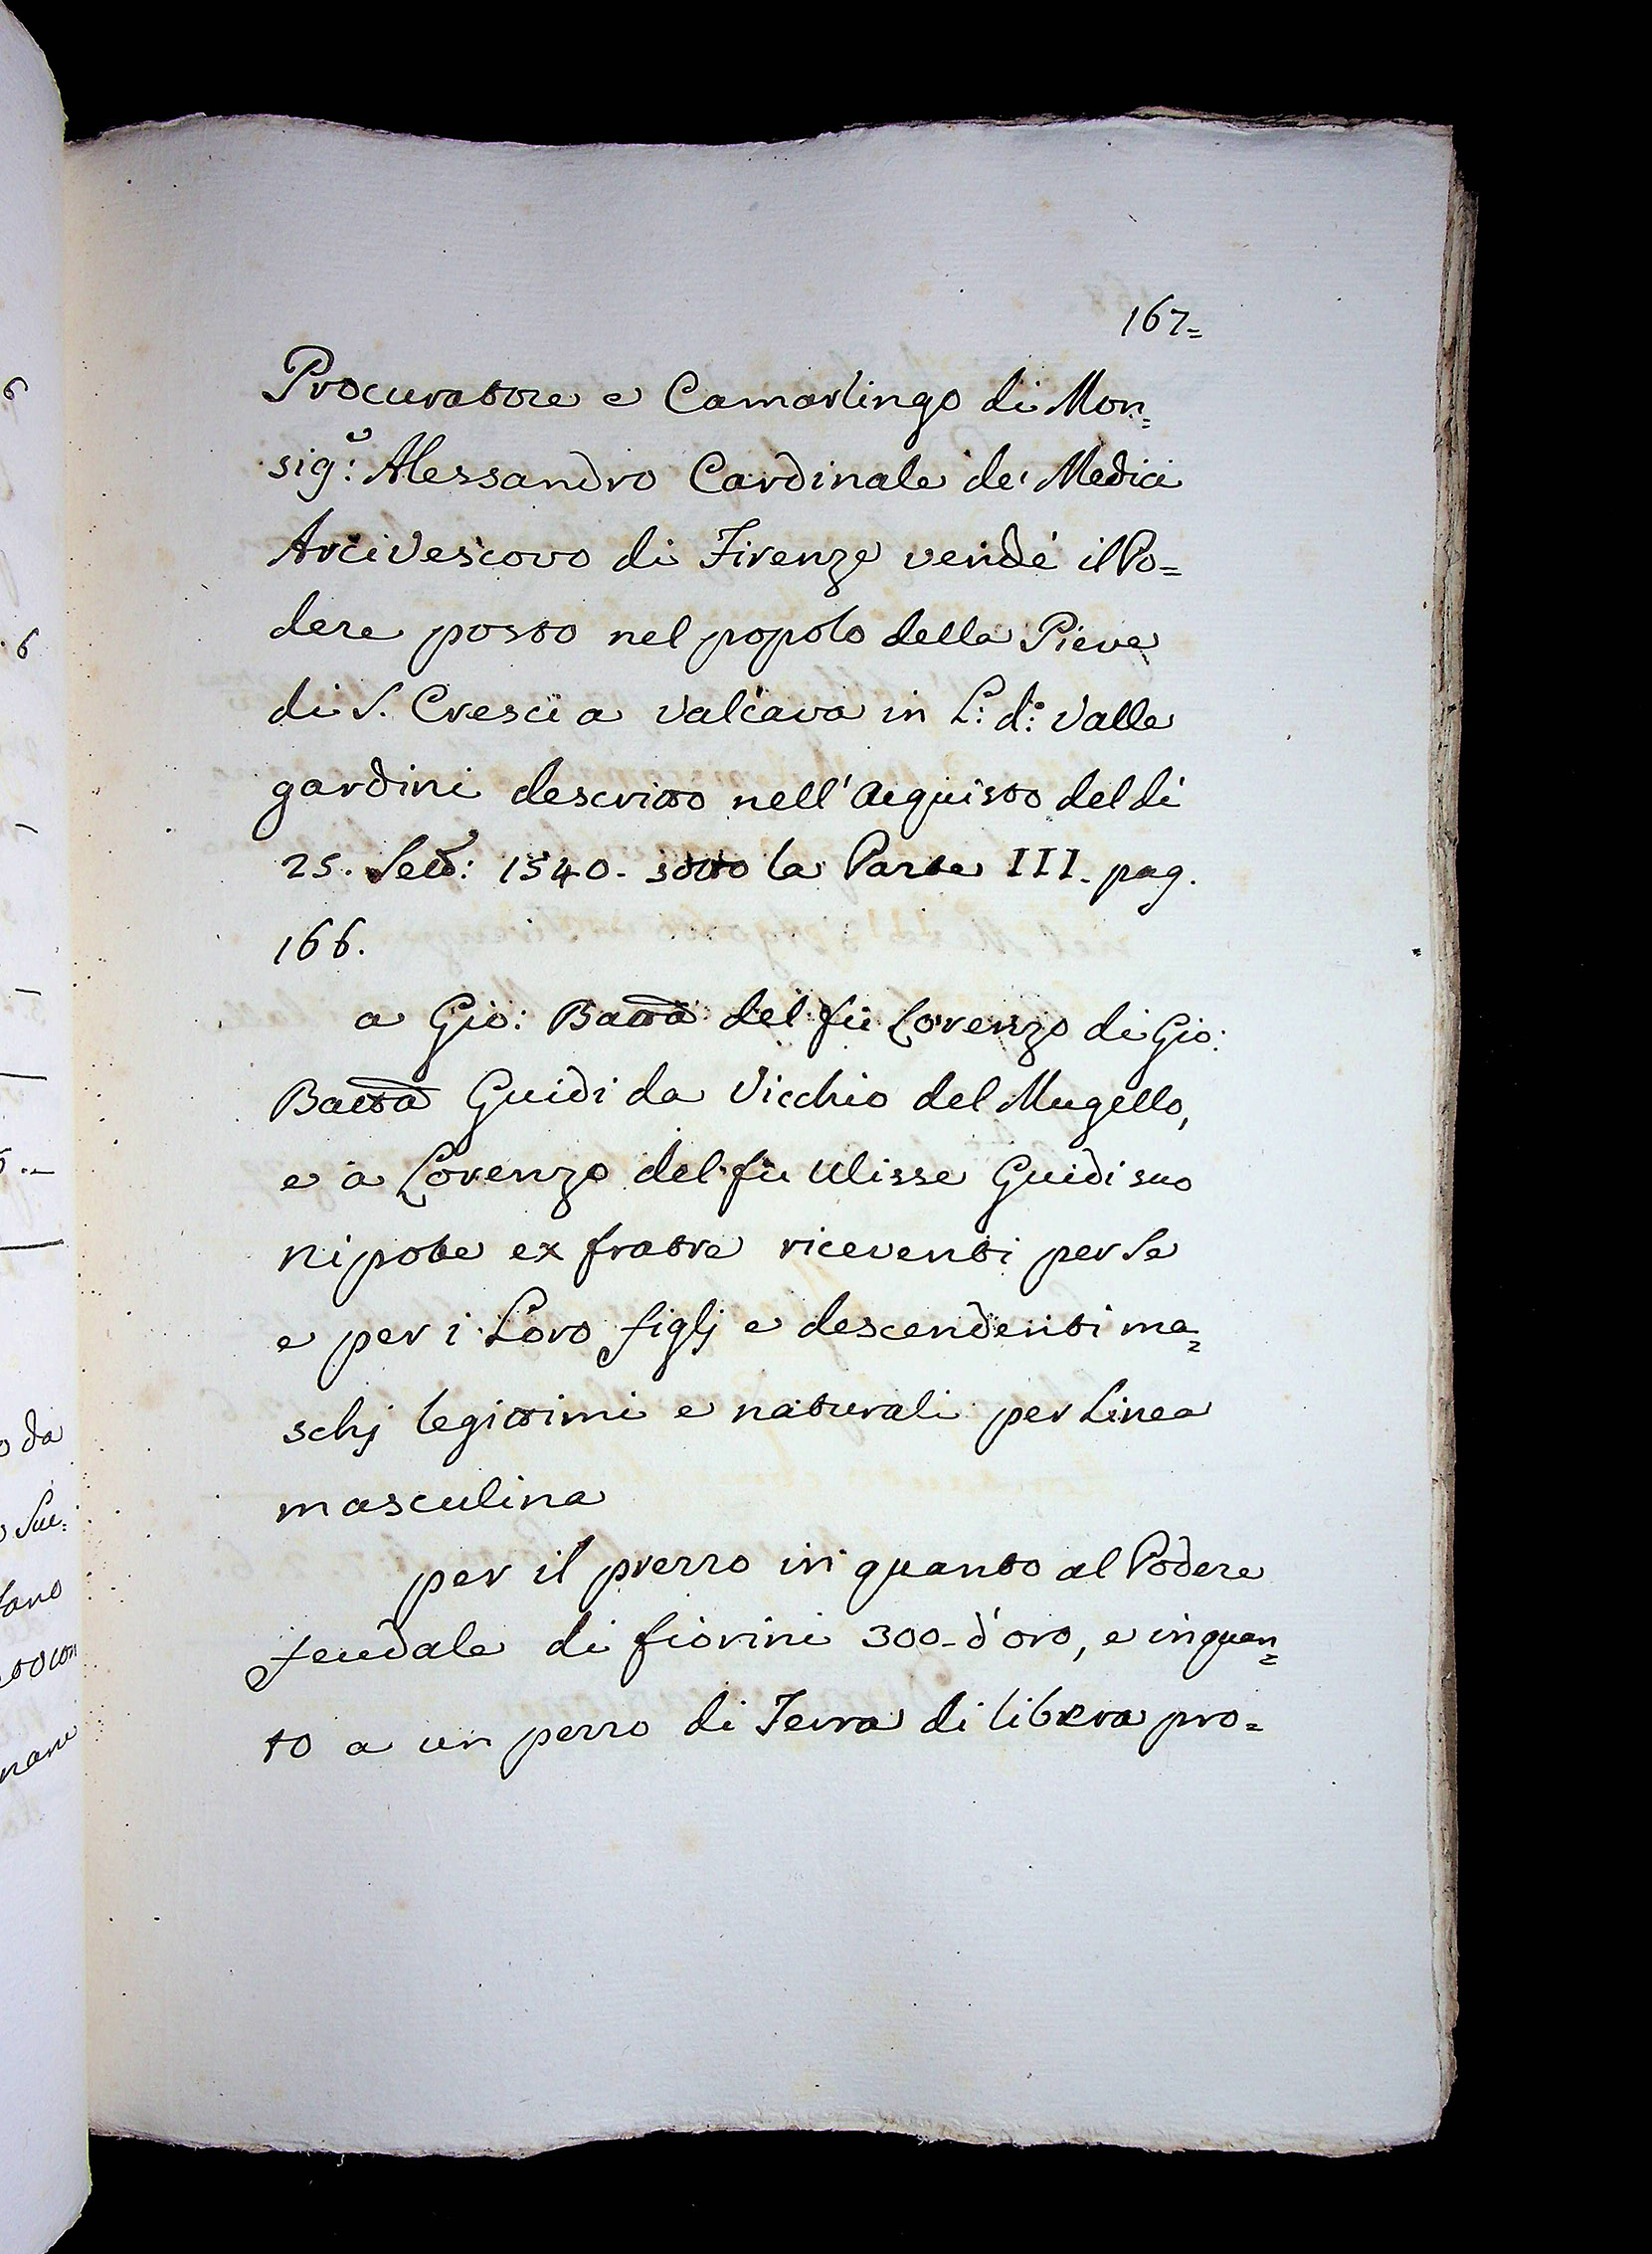 167=
Procuratore e Camarlingo di Mon=
sig.r: Alessandro Cardinale de' Medici
Arcivescovo di Firenze vendé il Po=
dere posto nel popolo della Pieve
di S. Cresci a Valcava in L: d: Valle
gardini descritto nell'acquisto del dì
25. Sett: 1540. sotto la Parte III. pag.
166.
a Gio: Batta del fù Lorenzo di Gio:
Batta Guidi da Vicchio del Mugello,
e a Lorenzo del fù Ulisse Guidi suo
nipote ex fratre riceventi per Se
e per i Loro figlj e descendenti ma=
schj legittimi e naturali per Linea
masculina
per il prezzo in quanto al Podere
feudale di fiorini 300. d'oro, e inquan=
to a un pezzo di Terra di libera pro=
6
6
o da
Sui:
tano
to con
nane